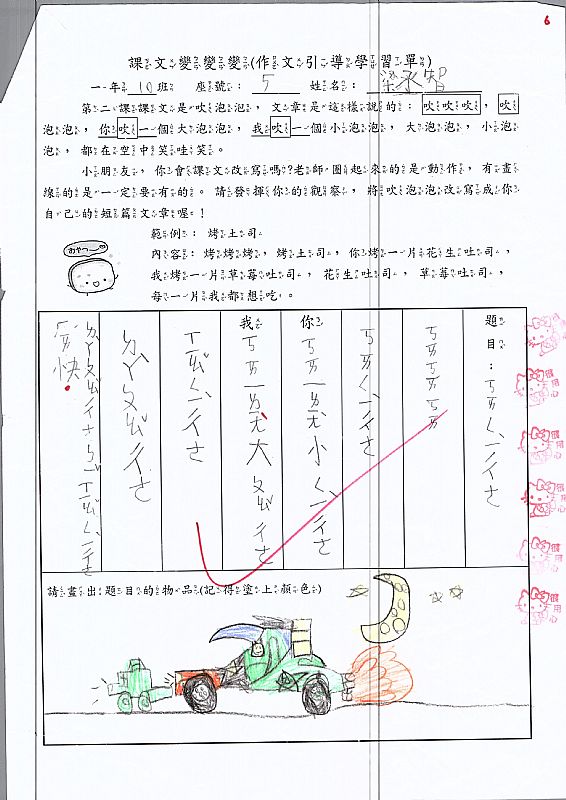 6
課文變變變(作文引導學習單)
一年10班 座號:5 姓名:梁丞智
第二課課文是吹泡泡,文章是這樣說的:吹吹吹,吹
泡泡,你吹一個大泡泡,我吹一個小泡泡,大泡泡,小泡
泡,都在空中笑哇笑。
小朋友,你會課文改寫嗎?老師圈起來的是動作,有畫
線的是一定要有的。請發揮你的觀察,將吹泡泡改寫成你
自己的短篇文章喔!
範例:烤土司
內容:烤烤烤,烤土司,你烤一片花生吐司,
我烤一片草莓吐司,花生吐司,草莓吐司,
每一片我都想吃。
題目:ㄎㄞㄑㄧˋㄔㄜ
ㄎㄞㄎㄞㄎㄞ
ㄎㄞㄑㄧˋㄔㄜ
你ㄎㄞㄧㄌㄤˋ小ㄑㄧˋㄔㄜ
我ㄎㄞㄧㄌㄤˋ大ㄑㄧˋㄔㄜ
請畫出題目的物品(記得塗上顏色)
很用心
很用心
很用心
很用心
很用心
很用心